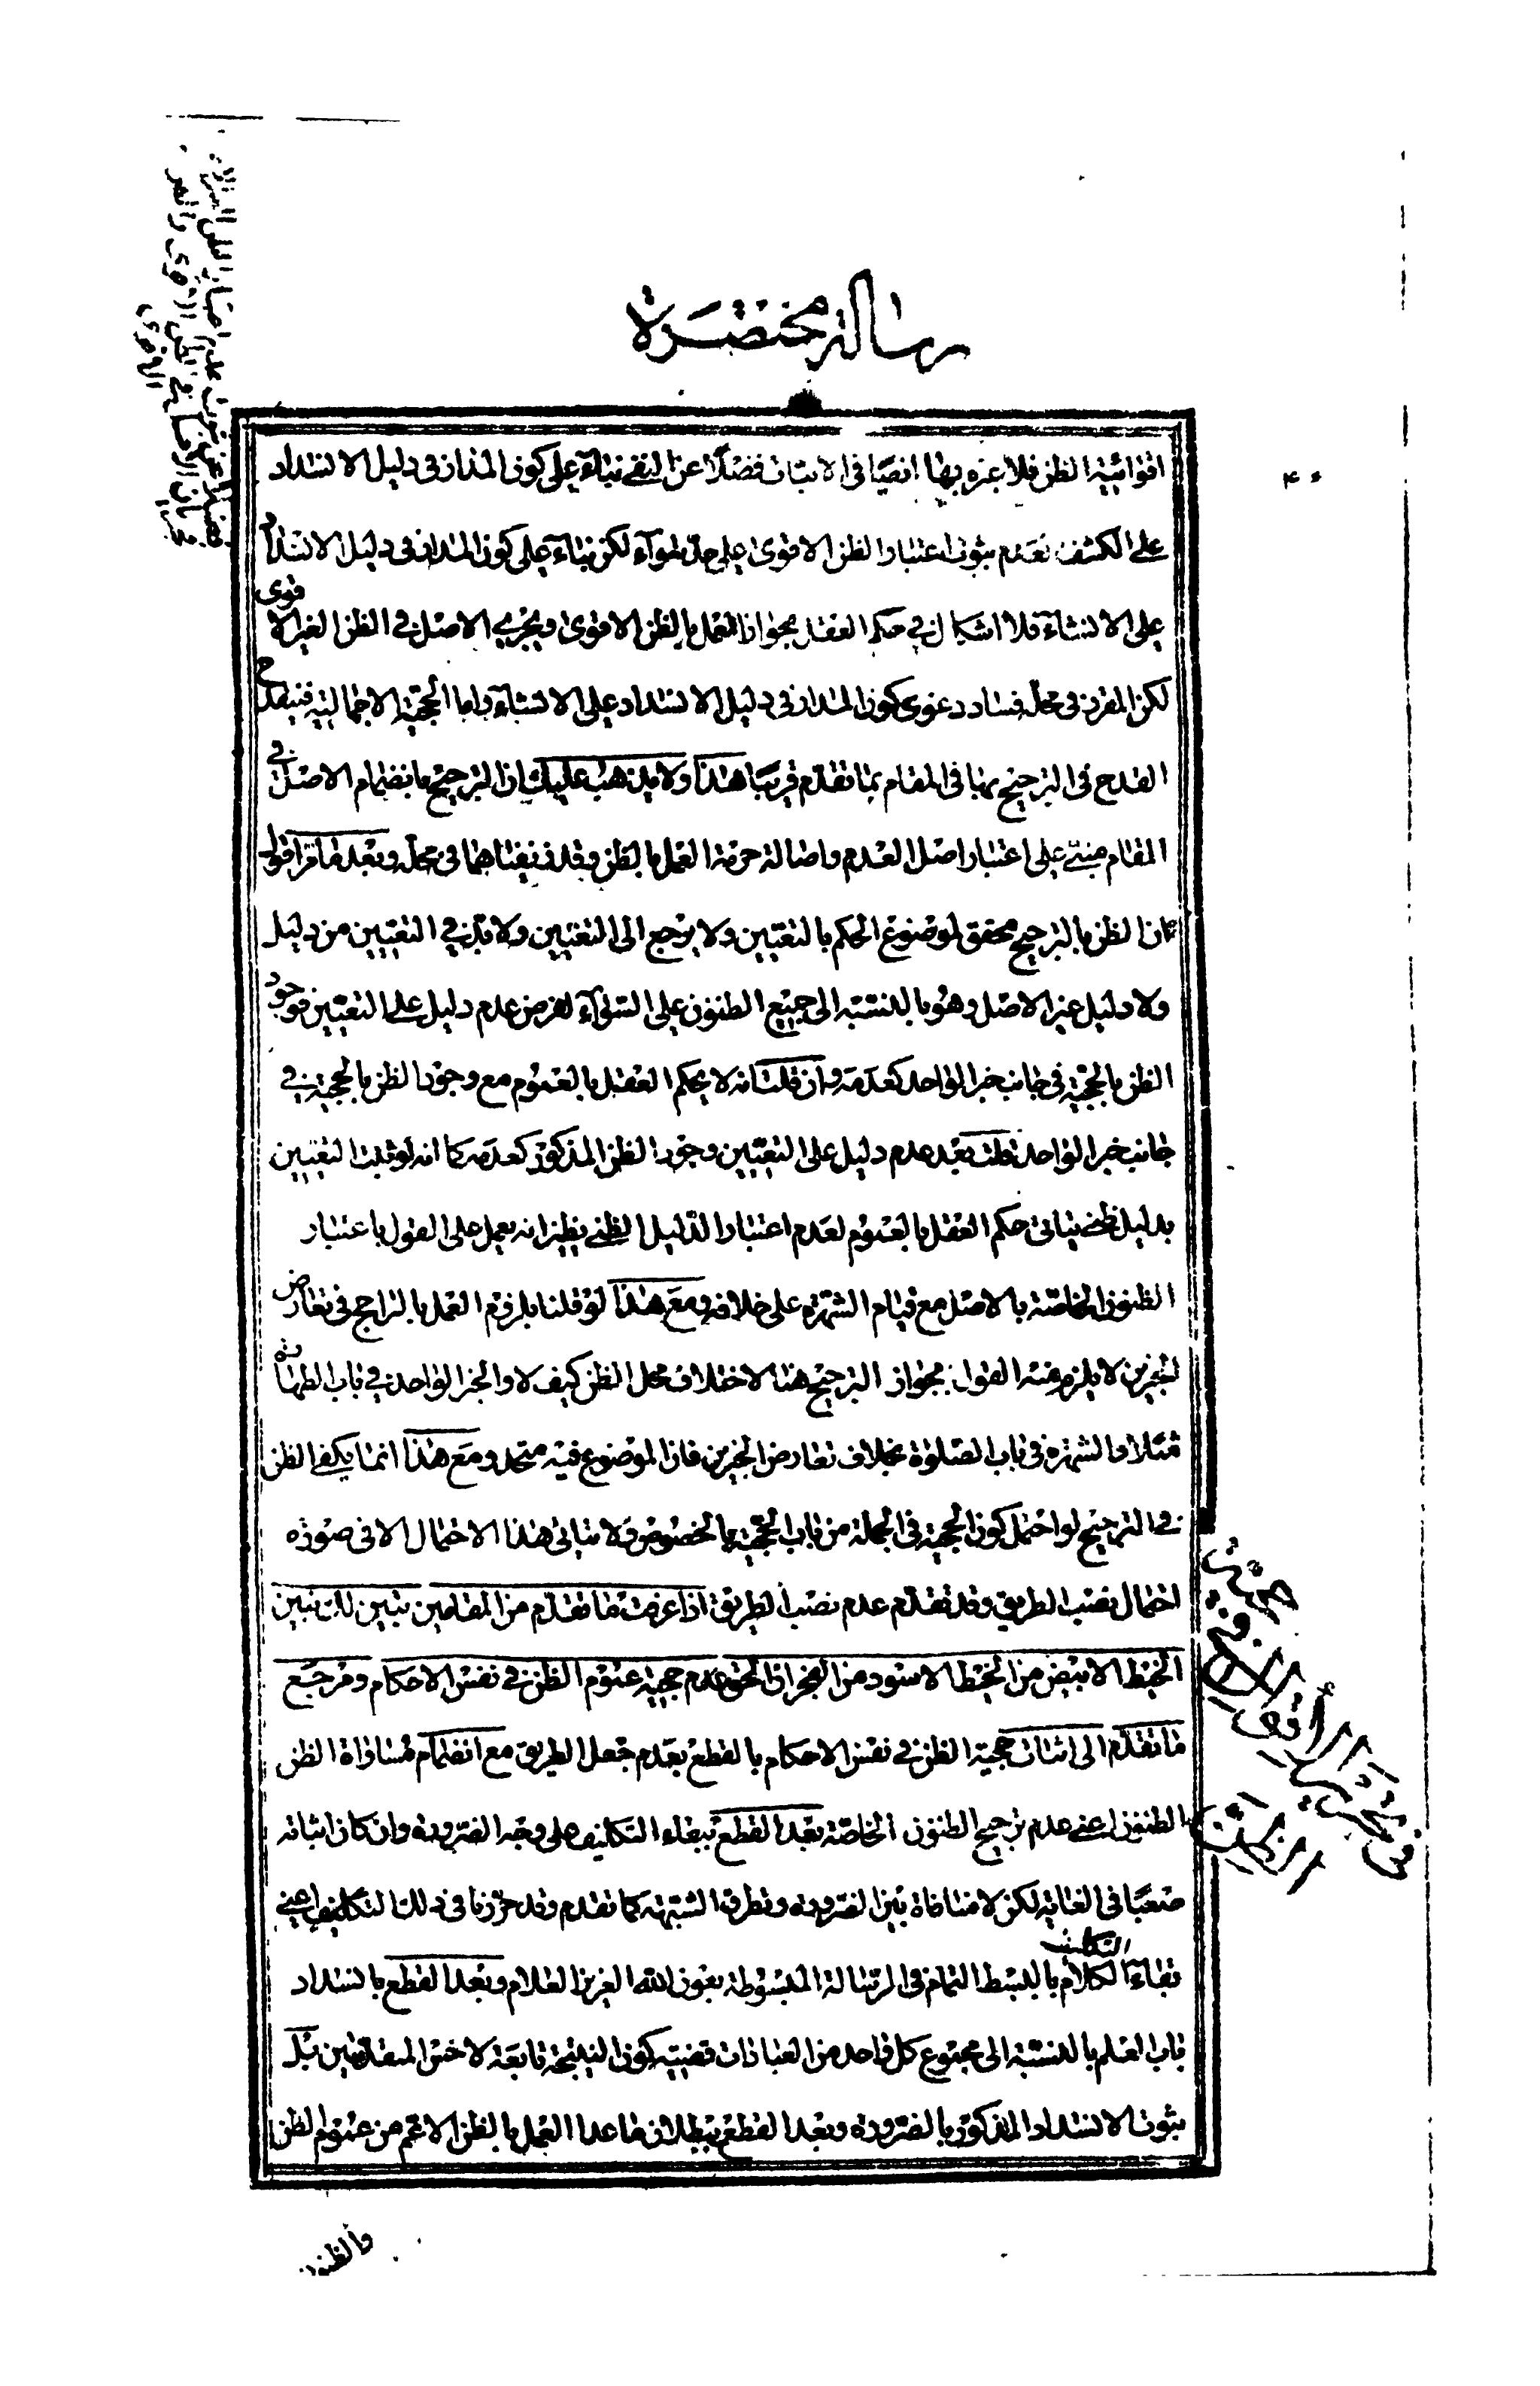 رسالة مختصرة
٤٠
اقوائية الظن فلا عبرة بها ايضا فى الاثبات فضلا عن النفي بناء على كون المدار فى دليل الانسداد
على الكشف لعدم ثبوت اعتبار الظن الاقوى على حد سواء لكن بناء على كون المدار فى دليل الانسداد
على الانشاء فلا اشكال في حكم العقل بجواز العمل بالظن الاقوى ويجري الاصل في الظن الغير الاقوى
لكن المفرد فى محله فساد دعوى كون المدار فى دليل الانسداد على الانشاء واما الحجية الاجمالية فينقدح
القدح فى الترجيح بها فى المقام بما تقدم قريبا هذا ولا يذهب عليك ان الترجيح بانضمام الاصل في
المقام مبني على اعتبار اصل العدم واصالة حرمة العمل بالظن وقد زيفناهما فى محله وبعد ما مر اقول
ان الظن بالترجيح محقق لموضوع الحكم بالتعيين ولا يرجع الى التعيين ولا بد في التعيين من دليل
ولا دليل غير الاصل وهو بالنسبة الى جميع الظنون على السواء لفرض عدم دليل على التعيين فوجود
الظن بالحجية فى جانب خبر الواحد كعدمه وان قلت انه لا يحكم العقل بالعموم مع وجود الظن بالحجية في
جانب خبر الواحد قلت بعد عدم دليل على التعيين وجود الظن المذكور كعدمه كما انه لو ثبت التعيين
بدليل ظني ينافى حكم العقل بالعموم لعدم اعتبار الدليل الظني نظير انه يعمل على القول باعتبار
الظنون الخاصة بالاصل مع قيام الشهرة على خلافه ومع هذا لو قلنا بلزوم العمل بالراجح فى تعارض
الخبرين لا يلزم منه القول بجواز الترجيح هنا لاختلاف محل الظن كيف لا والخبر الواحد في باب الطهارة
مثلا والشهرة فى باب الصلوة بخلاف تعارض الخبرين فان الموضوع فيه متحد ومع هذا انما يكفي الظن
في الترجيح لو احتمل كون الحجية فى الجملة من باب الحجية بالخصوص ولا يتاتى هذا الاحتمال الا فى صورة
احتمال نصب الطريق وقد تقدم عدم نصب الطريق اذا عرفت ما تقدم من المقامين تبين لك تبين
الخيط الابيض من الخيط الاسود من الفجر ان الحق عدم حجية عموم الظن في نفس الاحكام ومرجع
ما تقدم الى اثبات حجية الظن في نفس الاحكام بالقطع بعدم جعل الطريق مع انضمام مساواة الظن
الظنون اعني عدم ترجيح الظنون الخاصة بعد القطع ببقاء التكاليف على وجه الضرورة وان كان اثباته
صعبا فى الغاية لكن لا منافاة بين الضرورة وتطرق الشبهة كما تقدم وقد حررنا فى ذلك التكليف اعني
بقاء التكليف الكلام بالبسط التمام فى الرسالة المبسوطة بعون الله العزيز العلام وبعد القطع بانسداد
باب العلم بالنسبة الى مجموع كل واحد من العبادات قضية كون النتيجة تابعة لاخس المقدمتين بل
ثبوت الانسداد المذكور بالضرورة وبعد القطع ببطلان ما عدا العمل بالظن الاعم من عموم الظن
والظنون